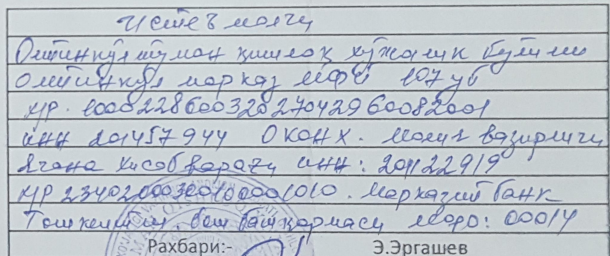 Истеъмолчи
Олтинкул туман кишлок хўжалик булими
Олтинкул марказ МФЙ 107 уб
Х/Р. 100022860032027042960082001
ИНН 201457944 ОКОНХ. Молия вазирлиги
Ягона хисоб вараги ИНН: 201122919
Х/Р 23402000300100001010. Марказий банк
Тошкент ш. бош бошкармаси МФО: 00014
Рахбари:- Э.Эргашев